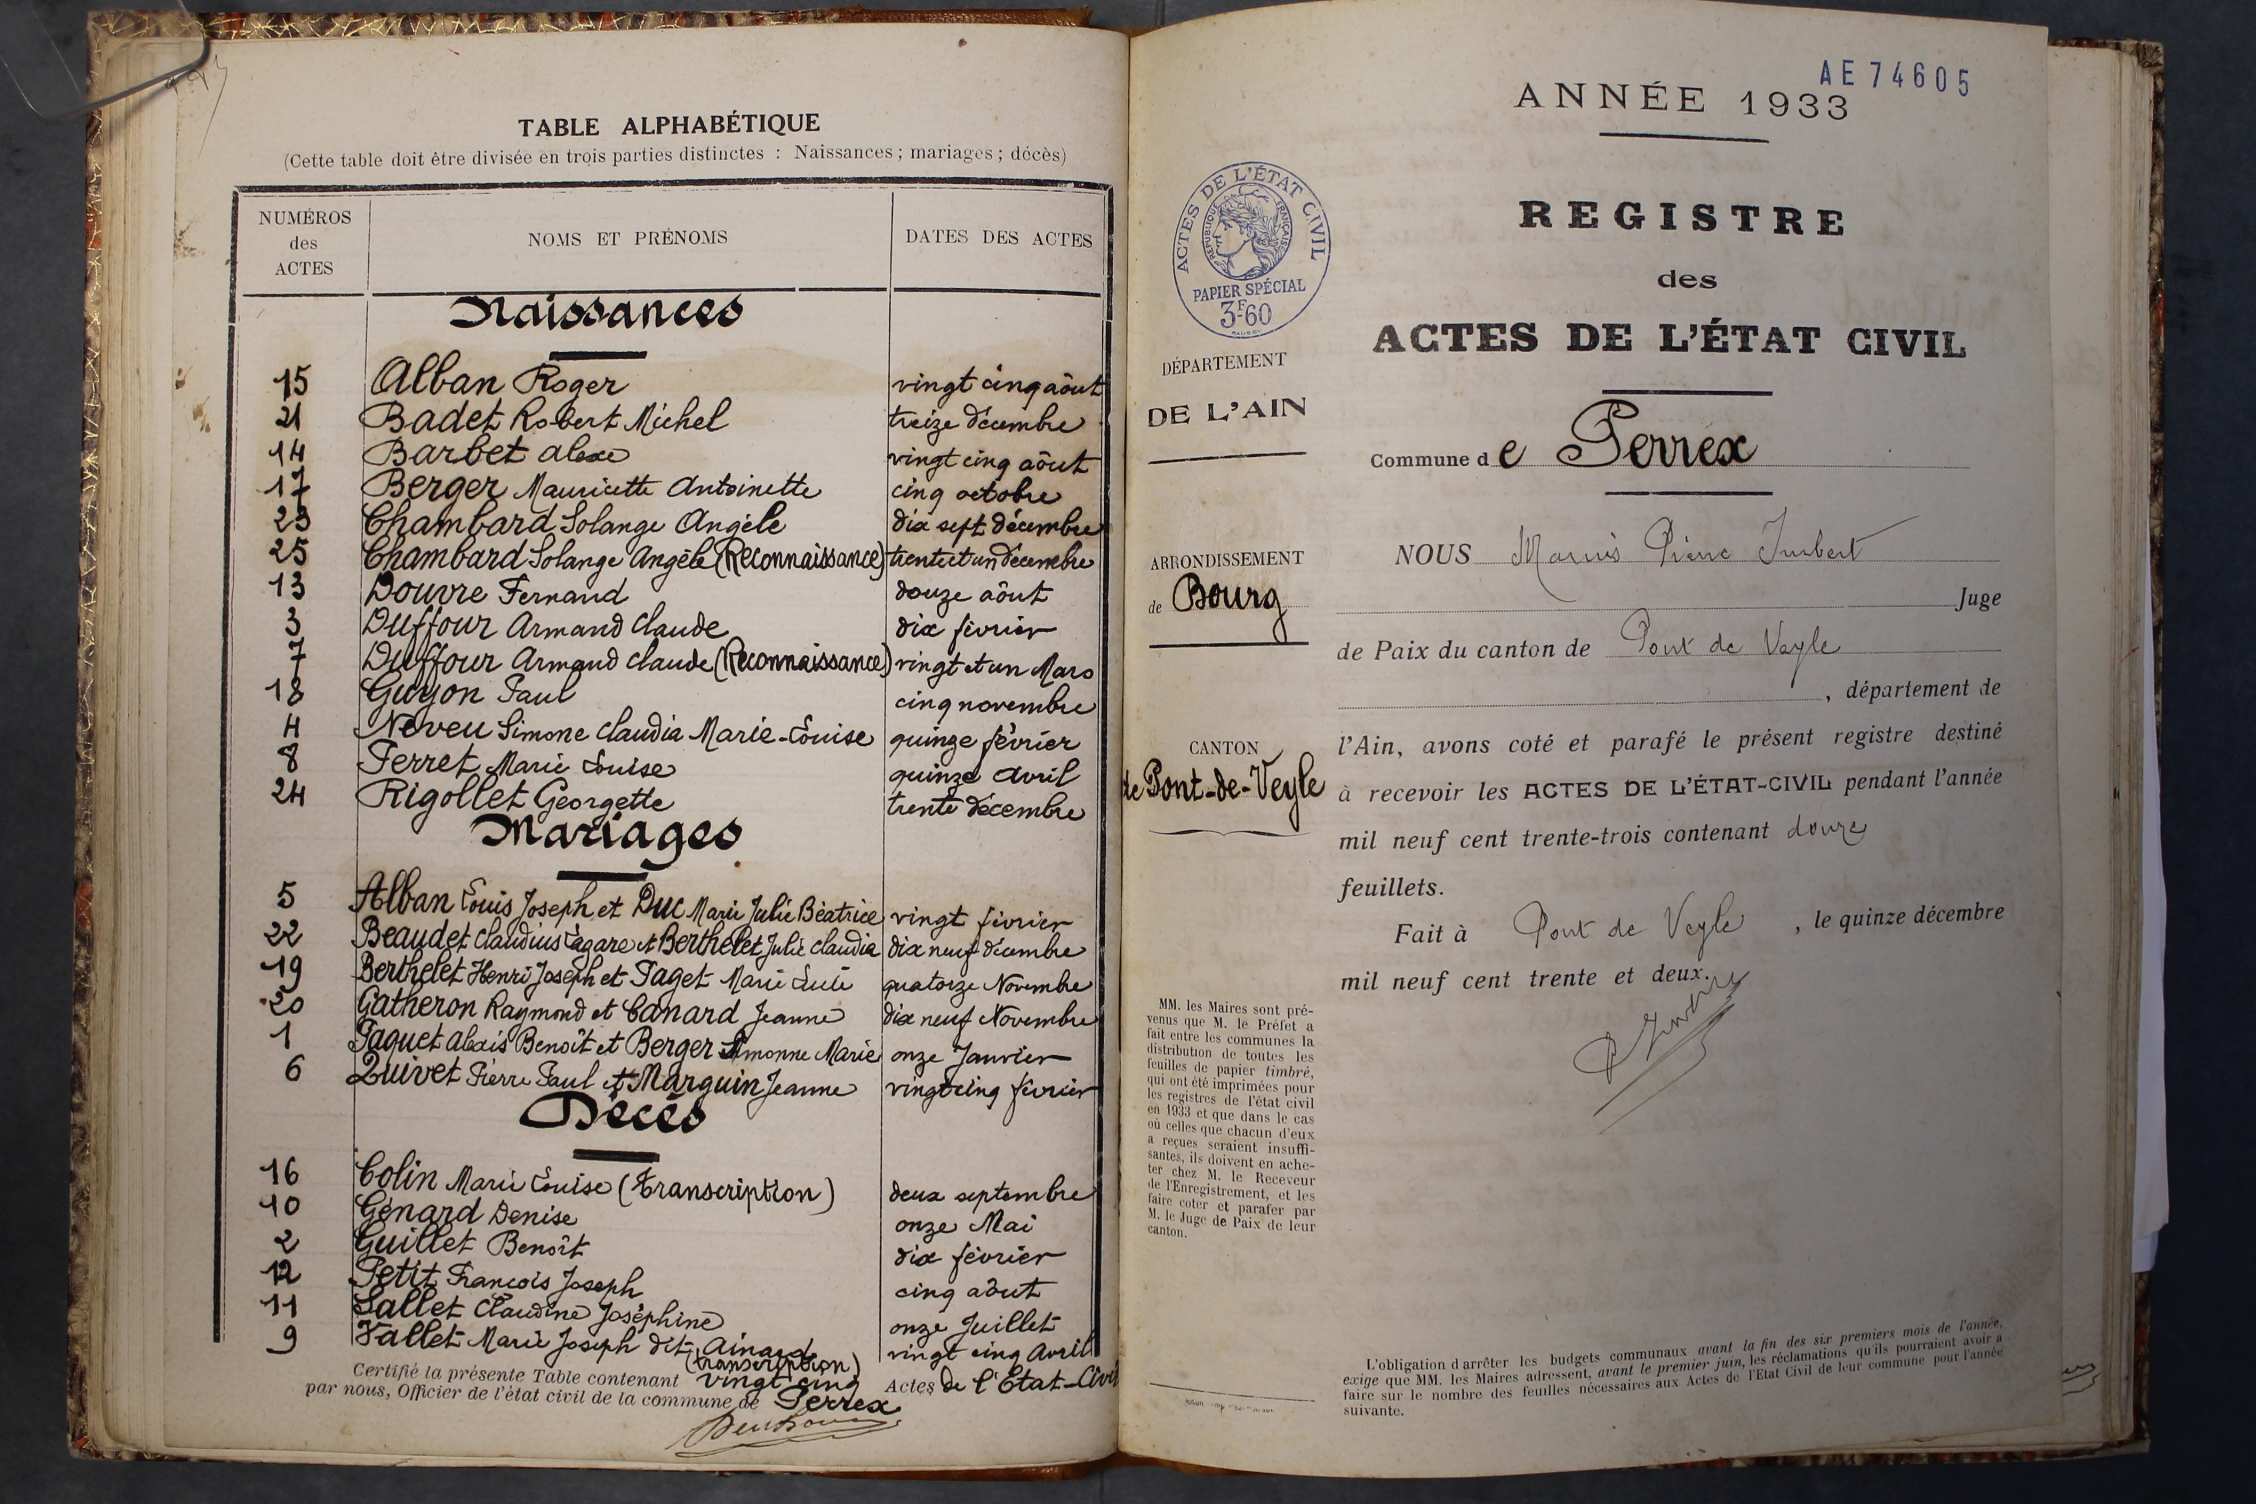 TABLE ALPHABÉTIQUE
(Cette table doit être divisée en trois parties distinctes : Naissances ; mariages ; décès)
NUMÉROS des ACTES NOMS ET PRÉNOMS DATES DES ACTES
Naissances
15 Alban Roger vingt cinq aôut
21 Badet Robert Michel treize décembre
14 Barbet alexe vingt cinq aôut
17 Berger Mauricette Antoinette cinq octobre
23 Chambard Solange Angèle dix sept décembre
25 Chambard Solange Angèle (Reconnaissance) trente et un décembre
13 Douvre Fernand douze aôut
3 Duffour Armand Claude dix février
7 Duffour Armand Claude (Reconnaissance) vingt et un Mars
18 Guyon Paul cinq novembre
4 Neveu Simone Claudia Marie-Louise quinze février
8 Perret Marie Louise quinze Avril
24 Rigollet Georgette trente décembre
Mariages
5 Alban Louis Joseph et Duc Marie Julie Béatrice vingt février
22 Beaudet Claudius Lazare et Berthelet Julie Claudia dix neuf décembre
19 Berthelet Henri Joseph et Paget Marie quatorze Novembre
20 Gatheron Raymond et Canard Jeanne dix neuf Novembre
1 Paquet alexis Benoît et Berger Simonne Marie onze Janvier
6 Quivet Pierre Paul et Marguin Jeanne vingt cinq février
Décès
16 Colin Marie Louise (Transcription) deux septembre
10 Génard Denise onze Mai
2 Guillet Benoît dix février
12 Petit François Joseph cinq aôut
11 Sallet Claudine Joséphine onze Juillet
9 Vallet Marie Joseph dit Ainard vingt cinq Avril
(transcription)
Certifié la présente Table contenant vingt cinq Actes de l'Etat-Civil
par nous, Officier de l'état civil de la commune de Perrex
AE74605
ANNÉE 1933
REGISTRE
des
ACTES DE L'ÉTAT CIVIL
Commune de Perrex
ACTES DE L'ÉTAT CIVIL
RÉPUBLIQUE FRANÇAISE
PAPIER SPÉCIAL
3F60
DÉPARTEMENT
DE L'AIN
ARRONDISSEMENT
de Bourg
CANTON
de Pont-de-Veyle
MM. les Maires sont pré-
venus que M. le Préfet a
fait entre les communes la
distribution de toutes les
feuilles de papier timbré,
qui ont été imprimées pour
les registres de l'état civil
en 1933 et que dans le cas
où celles que chacun d'eux
a reçues seraient insuffi-
santes, ils doivent en ache-
ter chez M. le Receveur
de l'Enregistrement, et les
faire coter et parafer par
M. le Juge de Paix de leur
canton.
NOUS Marius Pierre Imbert
Juge
de Paix du canton de Pont de Veyle
, département de
l'Ain, avons coté et parafé le présent registre destiné
à recevoir les ACTES DE L'ÉTAT-CIVIL pendant l'année
mil neuf cent trente-trois contenant douze
feuillets.
Fait à Pont de Veyle , le quinze décembre
mil neuf cent trente et deux.
L'obligation d'arrêter les budgets communaux avant la fin des six premiers mois de l'année,
exige que MM. les Maires adressent, avant le premier juin, les réclamations qu'ils pourraient avoir à
faire sur le nombre des feuilles nécessaires aux Actes de l'Etat Civil de leur commune pour l'année
suivante.